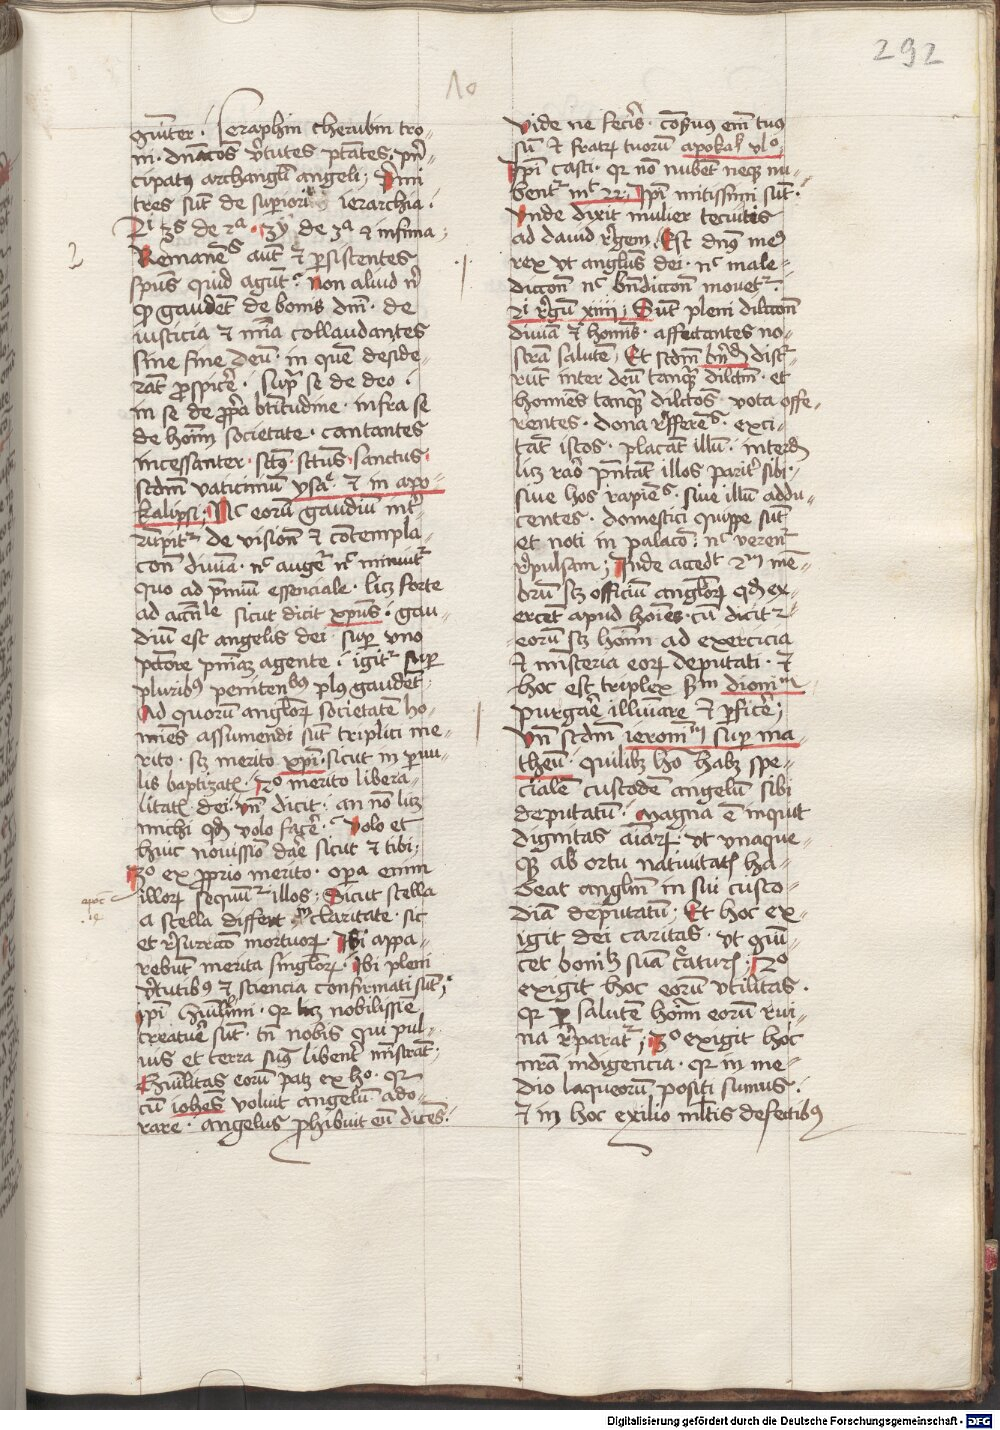 292
10
Seraphin cherubin tro-
ni · dnacōs v̾tutes ptates · pn̄-
cipatꝰ archangli angeli ; Primi
tres sūt de superiori ierarchia ·
2ⁱ 3ˢ de 2ᵃ · 3ⁱ de 3ᵃ ⁊ infima ;
2
Remanēˢ aūt ⁊ p̱sistentes
spūs quid agūt · non aliud n̄
qꝫ gaudēt de bonis dn̄i · de
iusticia ⁊ mīa collaudantes
sine fine deū · in quē deside-
rāt ꝓspicē̾ · supra se de deo ·
in se de ꝓpa btītudine · infra se
de hoīm societate · cantantes
incessanter · sctūs sctūs sanctus
scdm vaticiniū ysaͤ ⁊ in apo-
kalipsi ; Nᶜ eorū gaudiū int̾-
rūpitʳ de visione ⁊ cōtempla-
cōn diuīa · nᶜ augeʳ nᶜ minuitʳ
quo ad pͥmiū essenciale · licꝫ forte
ad accn̄ˡᵉ sicut dicit xp̄us · gau-
diū est angelis dei · super vno
pctōre pn̄iaꝫ agente · igitʳ super
pluribꝰ penitenᵇꝰ plꝰ gaudēt ·
Ad quorū angloꝝ societatē ho-
mīes assumendi sūt triplici me-
rito · sꝫ merito xp̄i · sicut in p̱uu-
lis baptizatꝭ · 2º merito libera-
litatꝭ dei · vn̄ dicit · an nō licꝫ
michi qd̄ volo facē̾ · Volo et
huic nouissīo dāe sicut ⁊ tibi ·
3º ex ꝓprio merito · opera enim
illoꝝ sequūtʳ illos ; Sicut stella
apoc̄
14
a stella differt in claritate · sic
et r̾surrectō mortuoꝝ · Ibi appa-
rebūt merita singloꝝ · Ibi pleni
v̾tutibꝰ ⁊ sciencia confirmati sūt ;
Ip̄i · qꝛ licꝫ nobilissime
creature sūt · tn̄ nobis qui pul-
uis et terra sumꝰ libent̾ mīstrāt ·
eorū patꝫ ex hº · qꝛ
cū iohēs voluit angelū ado-
rare · angelus ꝓhibuit eū dicēs ·
vide ne fecis̾ · cōs̾uus em̄ tuus
sū ⁊ fratꝝ tuorū apokaˡ vlº ·
Ip̄i casti · qꝛ nō nubēt neqꝫ nu-
bentʳ mᵗ 22 · Ip̄i mitissimi sūt ·
vnde dixit mulier tecuitis
ad dauid r̾gem · Est dn̄s meꝰ
rex vt anglus dei · nᶜ male-
diccōn nᶜ bn̄diccōn mouetʳ
2ⁱ r̾gū xiiii ; Sūt pleni dilcōn
diuīa ⁊ hoīnis · affectantes no-
stram salutē · Et scdm b̾nͬdū discʳ-
rūt inter deū tanqꝫ dilcm̄ · et
hoīnes tanqꝫ dilctōs · vota offe-
rentes · dona r̾fferēˢ · exci-
tāt istos · placāt illū · interdū
licꝫ raro p̄ntāt illos parit̾ sibi ·
siue hos rapiēˢ · siue illū addu-
centes · domestici quippe sūt
et noti in palacio · nᶜ verenʳ
r̾pulsam ; Inde acedᵗ 2ᵐ mē-
brū sꝫ officiū angloꝝ qd̄ ex-
ercēt apud hoīes · cū dicitʳ ·
eorū sꝫ hoīm ad exercicia
⁊ misteria eoꝝ deputati · ⁊
hoc est triplex sm̄ dionīᵐ
purgaē illuīare ⁊ p̱ficē̾ ;
Vn̄ scdm ieronīᵐ super ma-
theū · quilibꝫ hō habꝫ spe-
cialē custodē angelū sibi
deputatū · Magna ē inquit
dignitas aīarꝫ · vt vnaque-
qꝫ ab ortu natiuitatꝭ ha-
beat anglm̄ in sui custo-
diā deputatū ; Et hoc ex-
igit dei caritas · vt
cet bonitꝫ suā creaturis · 2º
exigit hoc eorū vtilitas ·
qꝛ p̱ salutē hoīm eorū rui-
na r̾paratʳ ; 3º exigit hoc
nrā indigencia · qꝛ in me-
dio laqueorū positi sumus ·
⁊ in hoc exilio mltis defectibꝰ
Digitalisierung gefördert durch die Deutsche Forschungsgemeinschaft - DFG